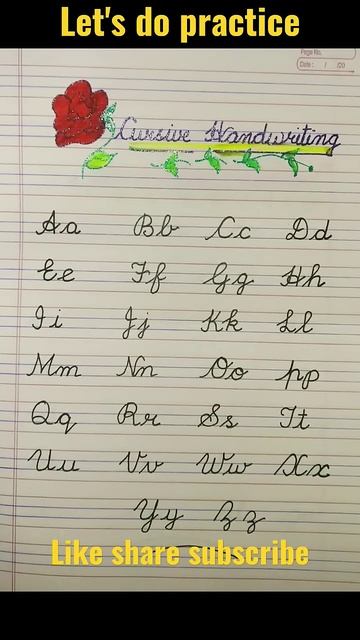 Let's do practice
Page No.
Date: / /20
Cursive Handwriting
Aa Bb Cc Dd
Ee Ff Gg Hh
Ii Jj Kk Ll
Mm Nn Oo pp
Qq Rr Ss Tt
Uu Vv Ww Xx
Yy Zz
Like share subscribe